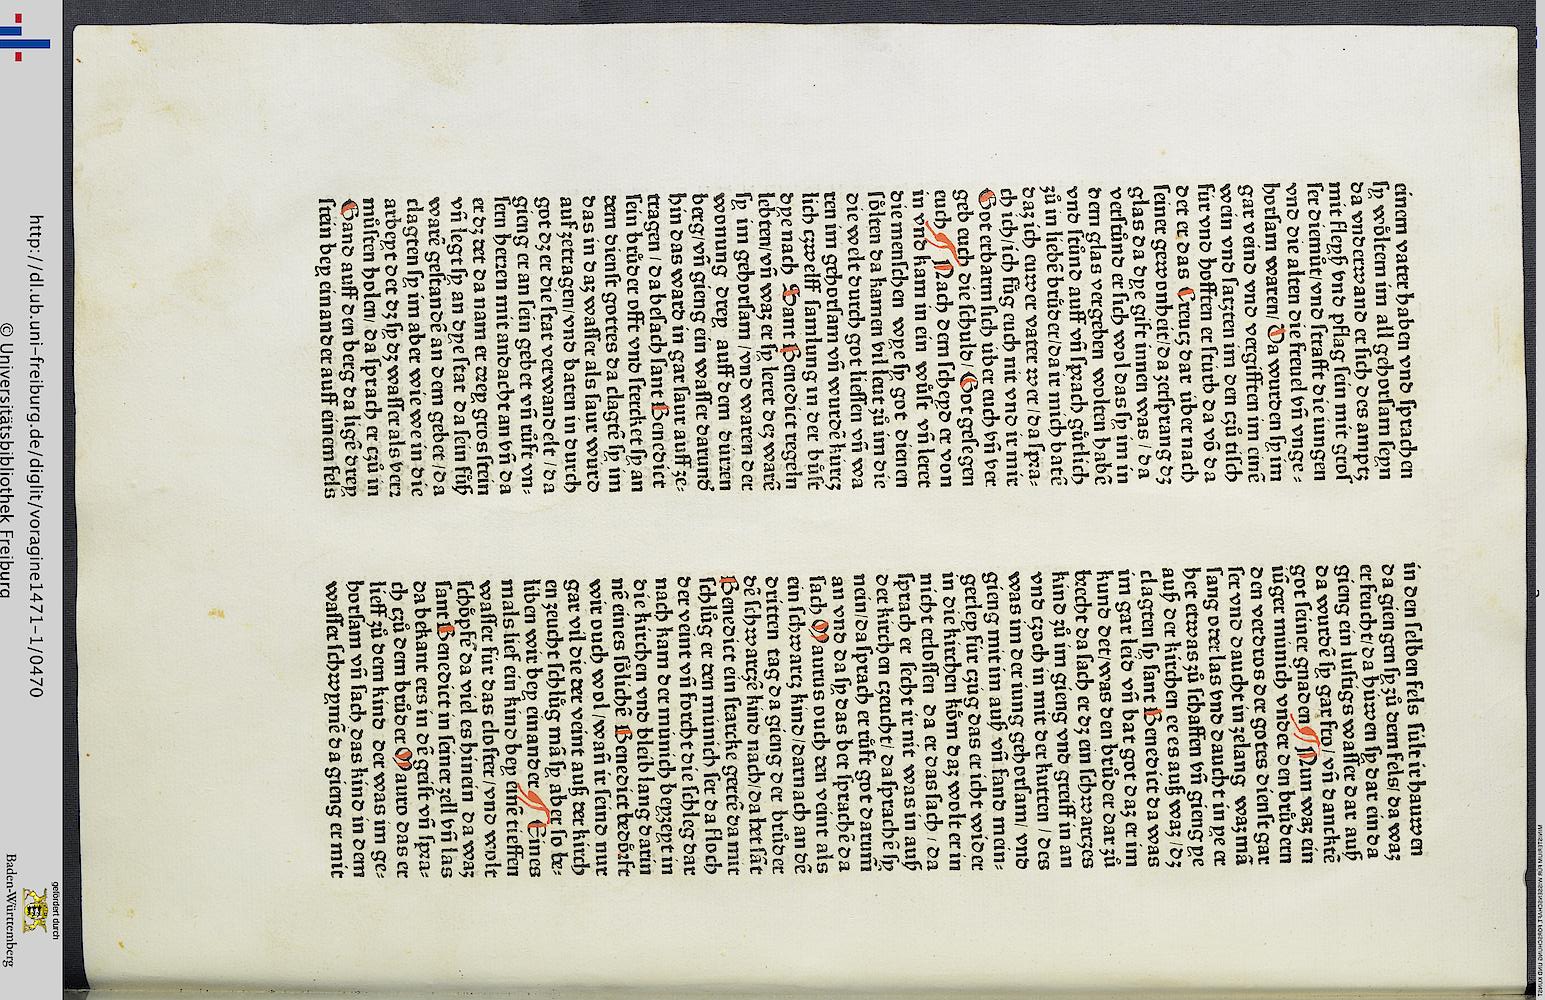 einem vater haben vnd sprachen
sy wöltem im all gehorsam seyn
da vnderwand er sich des amptz
mit fleyß vnd pflag sein mit gros
ser diemůt/vnd strafft die iungen
vnd die alten die freuel vn̄ vnge⸗
horsam waren/Da wurden sy im
gar veind vnd vergifften im einē
wein vnd satzten im den czů tisch
für vnd hofften er sturb da vō da
det er das Creucz dar über nach
seiner gewonheit/da zersprang dz
glas da dye gift innen was/da
verstůnd er sich wol das sy im in
dem glas vergeben wolten habē
vnd stůnd auff vn̄ sprach gůtlich
zů in liebē brůder/da ir mich batē
daz ich euwer vater wer/da spra⸗
ch ich/ich füg euch mit vnd ir mir
Got erbarm sich über euch vn̄ ver
geb euch die schuld/Got gesegen
euch Nach dem scheyd er von
in vnd kam in ein wůst vn̄ leret
die menschen wye sy got dienen
sölten da kamen vil leut zů im die
die welt durch got liessen vn̄ wa
ren im gehorsam vn̄ wurdē kurcz
lich czwelff samlung in der bůst
dye nach Sant Benedict regeln
lebten/vn̄ waz er sy leret dez warē
sy im gehorsam/vnd waren der
wonung drey auff dem dürren
berg/vn̄ gieng ein wasser darund
hin das ward in gar saur auff ze⸗
tragen/da besach sant Benedict
sein brůder offt vnd stercket sy an
dem dienst gottes da clagtē sy im
das in daz wasser als saur wurd
auf zetragen/vnd baten in durch
got dz er die stat verwandelt/da
gieng er an sein gebet vn̄ růft vn⸗
sern herren mit andacht an vn̄ da
er dz det da nam er drey gros stein
vn̄ legt sy an dye stat da sein fůß
warē gestandē an dem gebet/da
clagten sy im aber wie we in die
arbeyt det dz sy dz wasser als verr
můsten holen/da sprach er czů in
Gand auff den berg da ligē drey
stein bey einander auff einem fels
in den selben fels sült ir hauwen
da giengen sy zů dem fels/da waz
er feucht/da hüwen sy dar ein da
gieng ein lustigs wasser dar auß
da wurdē sy gar fro/vn̄ danckte
got seiner gnaden Nun waz ein
iüger münich vnder den brůdern
den verdros der gotes dienst gar
ser vnd daucht in zelang waz mā
sang oder las vnd daucht in ye er
het etwas zů schaffen vn̄ gieng ye
auß der kirchen ee es auß waz/dz
clagten sy sant Benedict da was
im gar leid vn̄ bat got daz er im
kund det/was den brůder dar zů
brecht da sach er dz ein schwarczes
kind zů im gieng vnd greiff in an
vnd czoch in mit der kutten/des
was im der iung gehorsam/vnd
gieng mit im auß vn̄ fand mein⸗
gerley für czug das er icht wider
in die kirchen köm daz wolt er in
nicht erlossen da er das sach/da
sprach er secht ir nit was in auß
der kirchen czeucht/da sprachē sy
nein/da sprach er růft got darum̄
an vnd da sy das ber sprachē da
sach Maurus ouch den veint als
ein schwarcz kind/darnach an dē
dritten tag da gieng der brůder
dē schwarczē kind nach/da het sāt
Benedict ein starcke gertē da mit
schlůg er den münich ser da floch
der veint vn̄ forcht die schleg dar
nach kam der münich beyzeyt in
die kirchen vnd bleib lang darin
nē eines sölichē Benedict bedörft
wir ouch wol/wan̄ ir seind nur
gar vil die der veint auß der kirch
en zeucht schlůg mā sy aber so be⸗
liben wir bey einander Eines
mals lief ein kind bey einē tieffen
wasser für das closter/vnd wolt
schöpfē da viel es hinein da waz
sant Benedict in seiner zell vn̄ las
da bekant ers in dē geist vn̄ spra⸗
ch czů dem brůder Mauro das er
lieff zů dem kind der was im ge⸗
horsam vn̄ sach das kind in dem
wasser schwymē da gieng er mit
http://dl.ub.uni-freiburg.de/diglit/voragine1471-1/0470
© Universitätsbibliothek Freiburg
gefördert durch
Baden-Württemberg